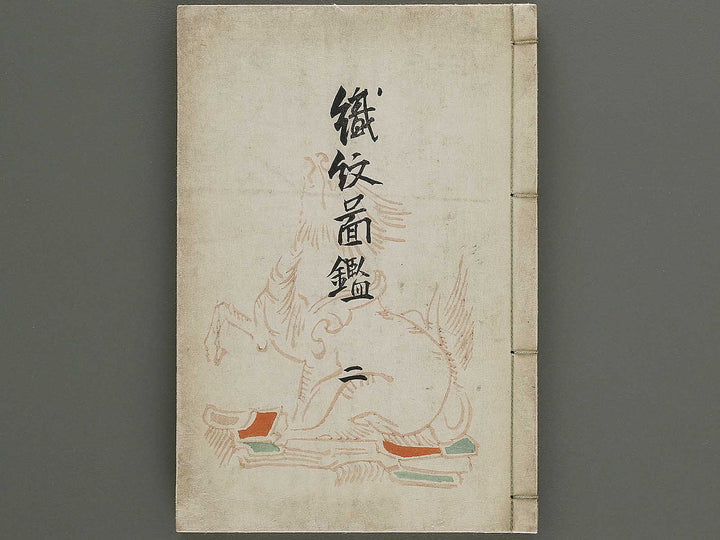 織紋啚鑑
二